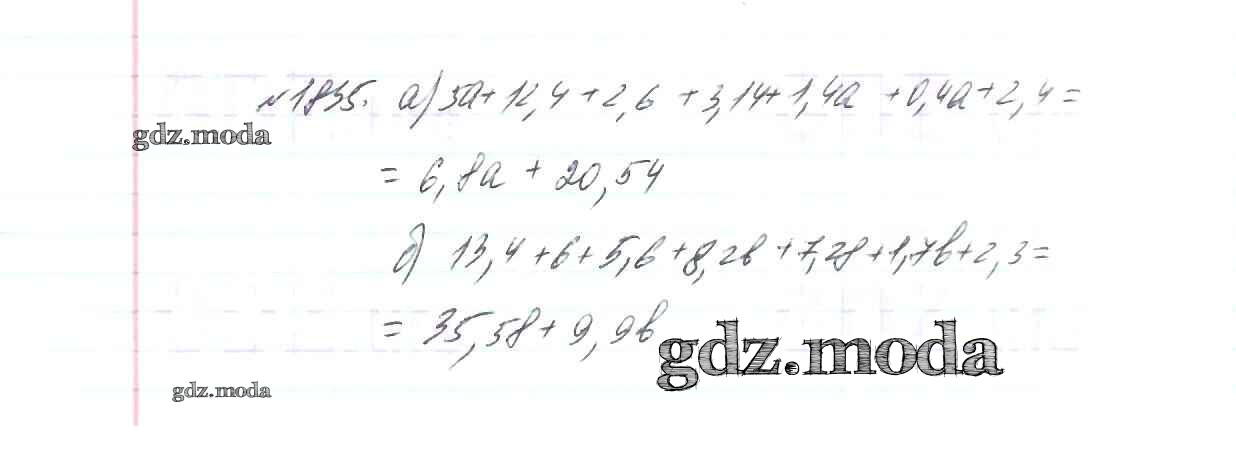 №1835. а) 5а + 12,4 + 2,6 + 3,14 + 1,4а + 0,4а + 2,4 =
gdz.moda
= 6,8а + 20,54
б) 13,4 + 6 + 5,6 + 8,2b + 7,28 + 1,7b + 2,3 =
= 35,58 + 9,9b
gdz.moda
gdz.moda